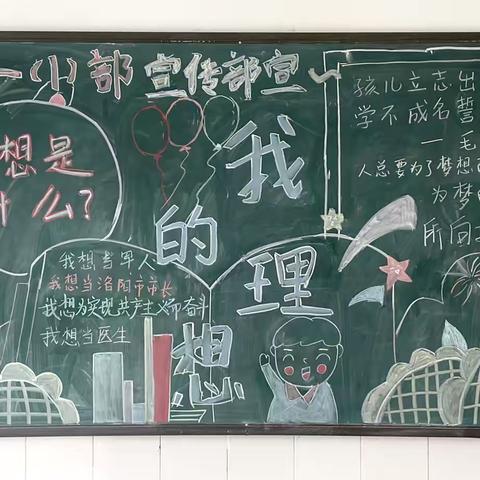 一小部宣传部宣
想是
什么?
我的理想
我想当军人
我想当洛阳市市长
我想为实现共产主义而奋斗
我想当医生
孩儿立志出
学不成名誓
一毛
人总要为了梦想
为梦
所向